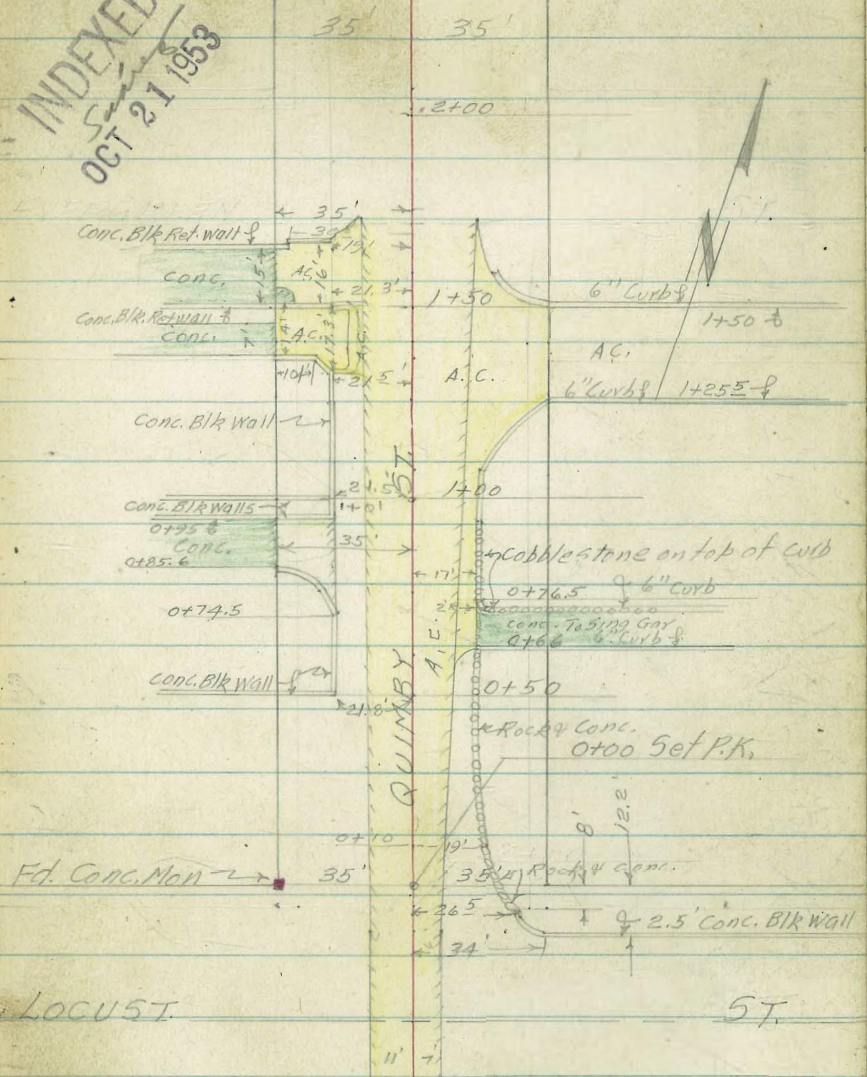 INDEXED
OCT 21 1953
35' 35'
2+00
35'
Conc. Blk Ret. Wall
30
19'
Conc.
15'
A.C.
16'
21.3'
1+50
6" Curb
1+50
Conc. Blk. Ret Wall
Conc.
7'
14'
A.C.
17.3'
A.C.
A.C.
A.C.
10'
21.5'
6" Curb
1+25.5
Conc. Blk Wall
21.5'
1+00
Conc. Blk Walls
0+95
Conc.
0+85.6
35
17'
Cobblestone on top of curb
0+76.5 6" Curb
2'
0+74.5
Conc. To Sing Gar
0+66 6" Curb
A.C.
QUIMBY ST.
Conc. Blk Wall
21.8'
0+50
Rock & Conc.
0+00 Set P.K.
8'
12.2'
0+10
19'
Fd. Conc. Mon
35' 35'
Rock & Conc.
26.5
2.5' Conc. Blk Wall
34'
LOCUST. ST.
11' 7'